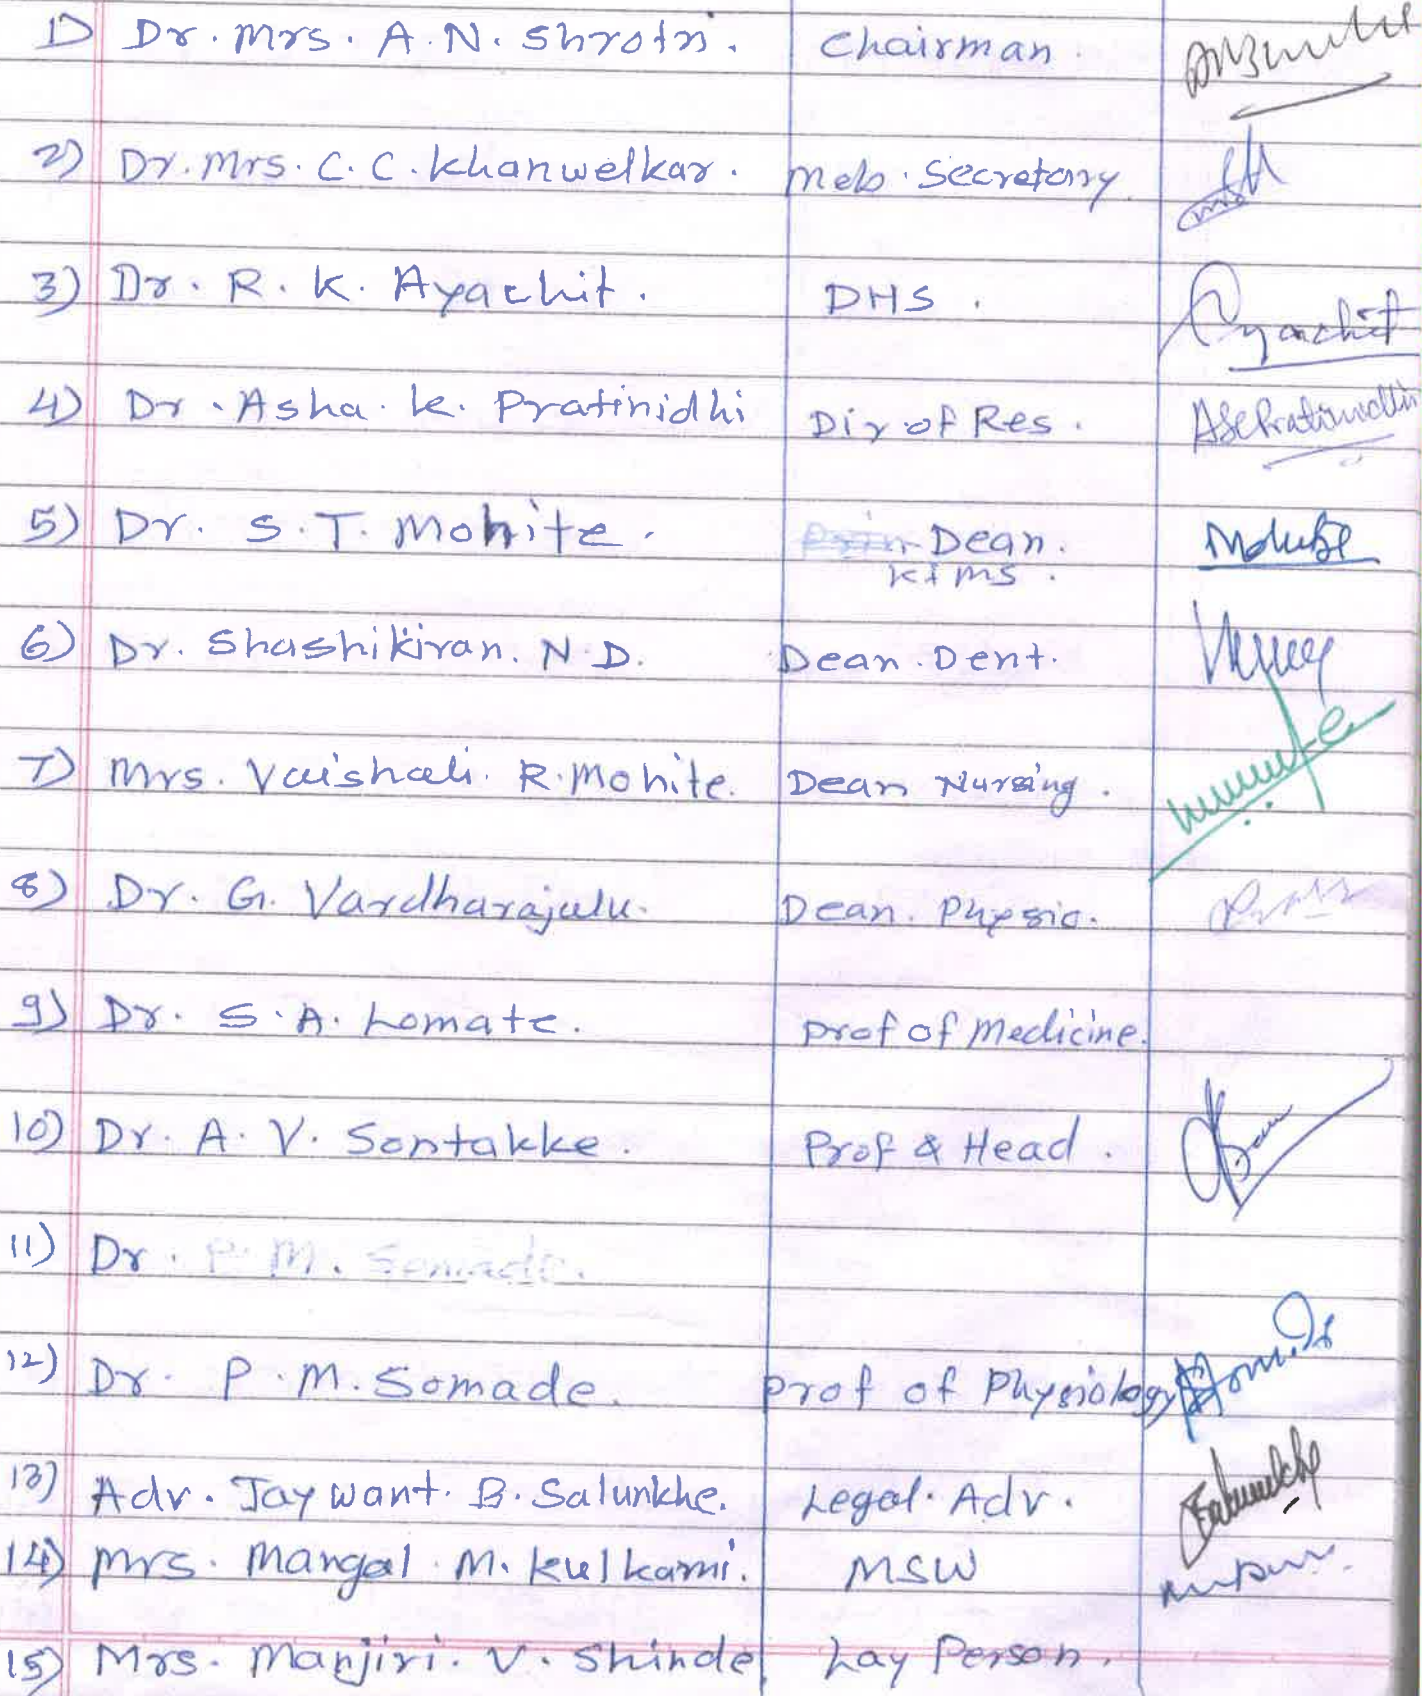 1) Dr. Mrs. A. N. Shrotri. Chairman.
2) Dr. Mrs. C. C. Khanwelkar. Meb. Secretary.
3) Dr. R. K. Ayachit. DHS. Ayachit
4) Dr. Asha. K. Pratinidhi Dir of Res. AsKPratinidhi
5) Dr. S. T. Mohite. Dean.
KIMS.
6) Dr. Shashikiran. N. D. Dean. Dent.
7) Mrs. Vaishali. R. Mohite. Dean Nursing.
8) Dr. G. Vardharajulu. Dean. Physio.
9) Dr. S. A. Lomate. Prof of Medicine.
10) Dr. A. V. Sontakke. Prof & Head.
11) Dr. P. M. Somade.
12) Dr. P. M. Somade. Prof of Physiology
13) Adv. Jaywant. B. Salunkhe. Legal. Adv. Salunkhe
14) Mrs. Mangal. M. Kulkarni. MSW
15) Mrs. Manjiri. V. Shinde Lay Person.